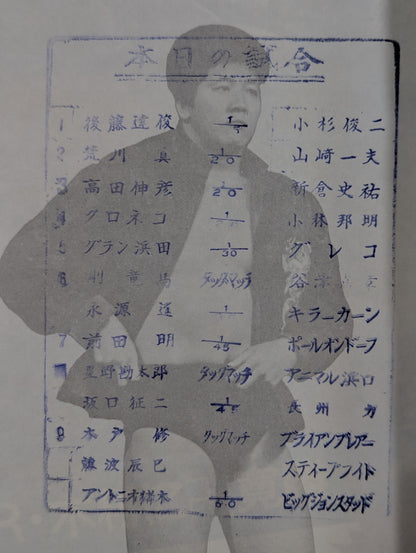 本日の試合
1 後藤達俊 1/ 小杉俊二
2 荒川真 1/20 山崎一夫
3 高田伸彦 1/20 新倉史祐
4 クロネコ 1/ 小林邦明
5 グラン浜田 1/30 グレコ
6 剛竜馬 タッグマッチ 谷津
永源遥 1/ キラーカーン
7 前田明 1/45 ポールオンドーフ
星野勘太郎 タッグマッチ アニマル浜口
坂口征二 1/45 長州力
9 木戸修 タッグマッチ ブライアンブレアー
藤波辰巳 スティーブライト
アントニオ猪木 1/60 ビッグジョンスタッド